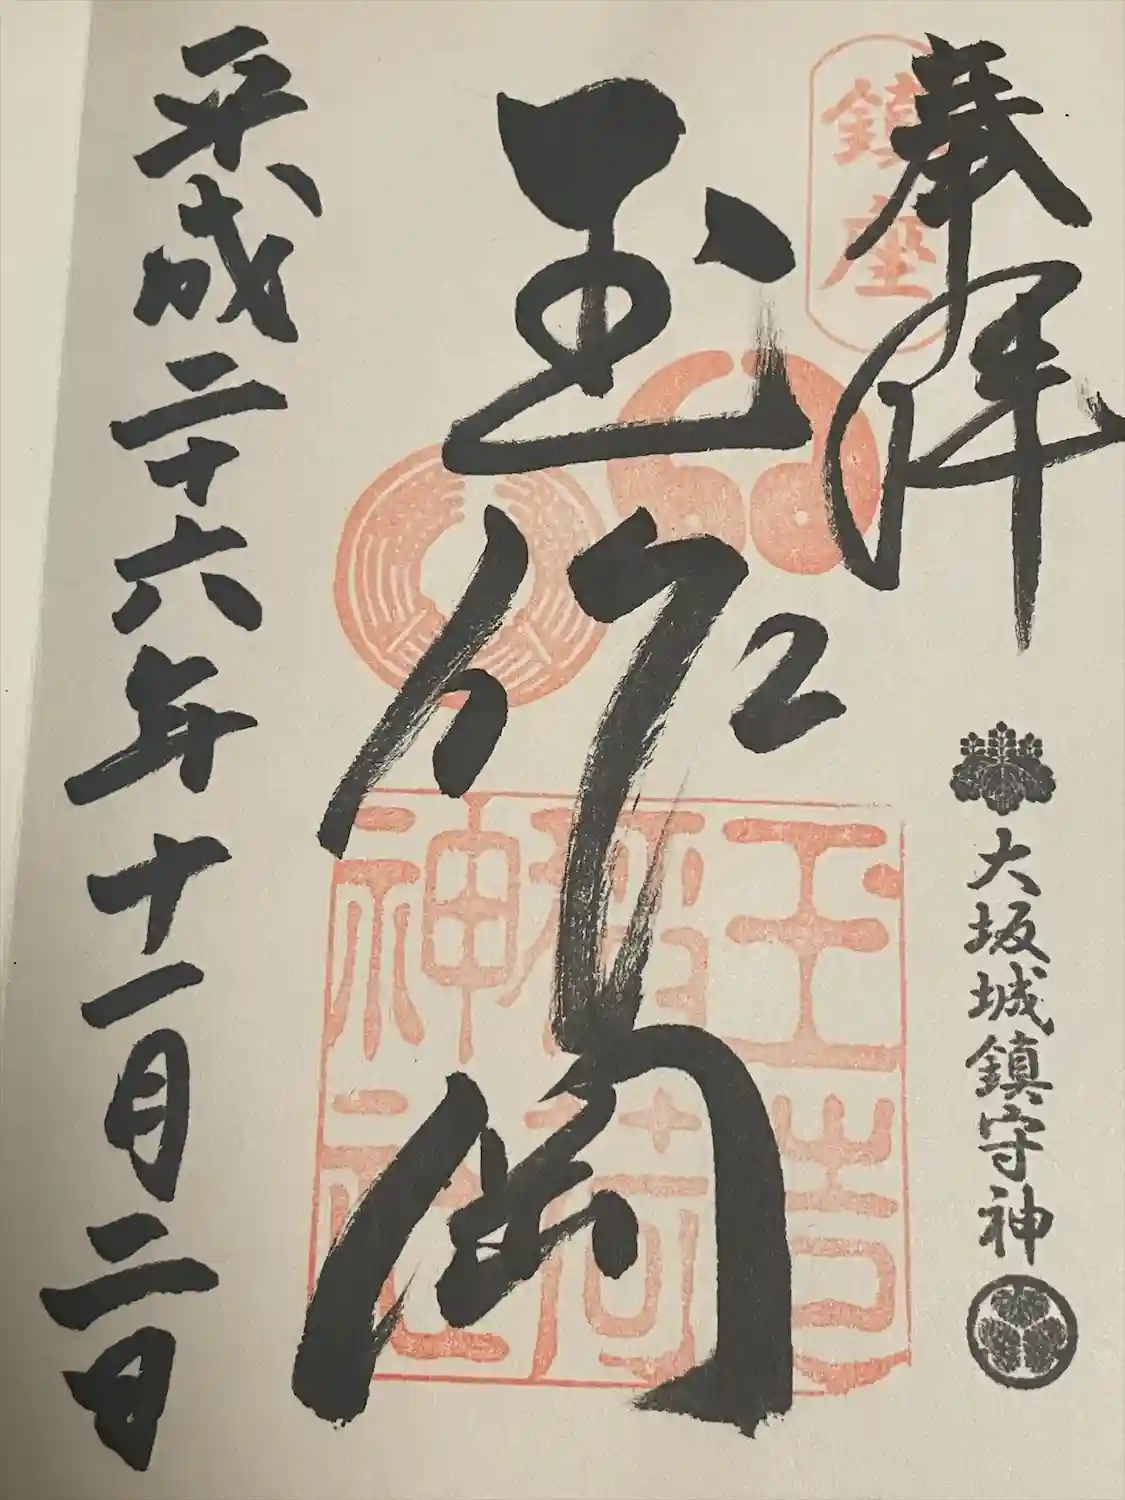 奉拝
鎮座
大坂城鎮守神
玉作岡
玉造稲荷神社
平成二十六年十一月二日